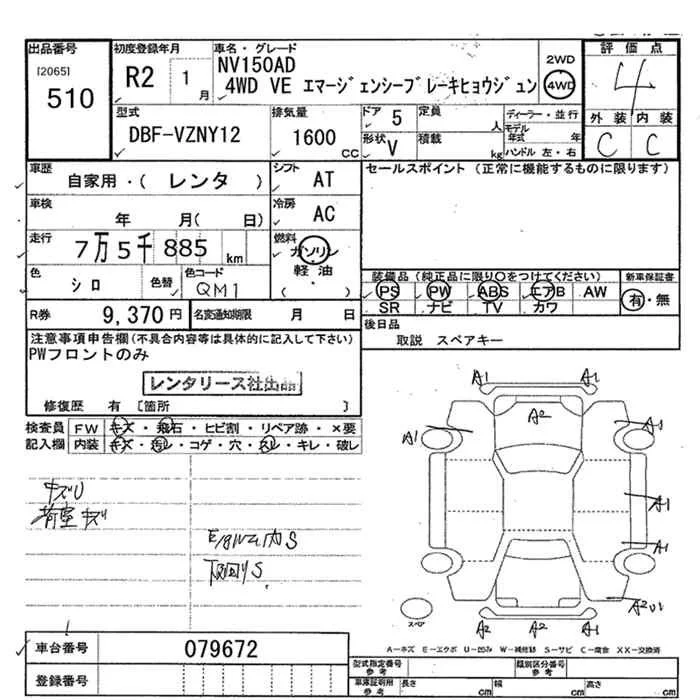 出品番号
[2065]
510
初度登録年月
R2 1月
車名・グレード
NV150AD
4WD VE エマージェンシーブレーキヒョウジュン
2WD
4WD
評価点
4
外装 内装
C C
型式
DBF-VZNY12
排気量
1600 CC
ドア 5
形状 V
定員 人
積載 kg
ディーラー・並行
モデル年式 年
ハンドル 左・右
車歴
自家用・( レンタ )
シフト
AT
セールスポイント (正常に機能するものに限ります)
車検
年 月( 日)
冷房
AC
走行
7万5千885 km
燃料
ガソリン
軽油
( )
色
シロ
色替
色コード
QM1
装備品 (純正品に限り○をつけてください)
PS PW ABS エアB AW
SR ナビ TV カワ
新車保証書
有・無
R券 9,370円
名変通知期限 月 日
後日品
取説 スペアキー
注意事項申告欄(不具合内容等は具体的に記入して下さい)
PWフロントのみ
レンタリース社出品
修復歴 有 [箇所 ]
検査員記入欄
FW キズ・飛石・ヒビ割・リペア跡・×要
内装 キズ・汚レ・コゲ・穴・スレ・キレ・破レ
キズU
荷室キズ
下回りS
A1 A1
A2
A1
A1
A1
A2 A2 A1
スペア
A-キズ E-エクボ U-凹み W-補修跡 S-サビ C-腐食 XX-交換済
車台番号 079672
登録番号
型式指定番号 参考
類別区分番号 参考
車庫証明用 参考
長さ cm 幅 cm 高さ cm